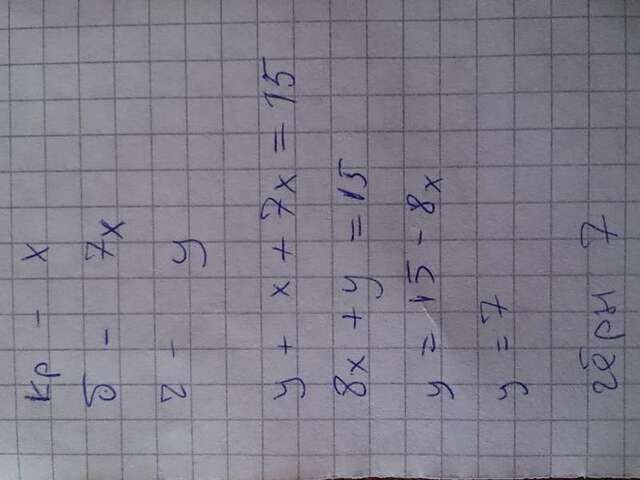 кр - x
б - 7x
г - y
y + x + 7x = 15
8x + y = 15
y = 15 - 8x
y = 7
7